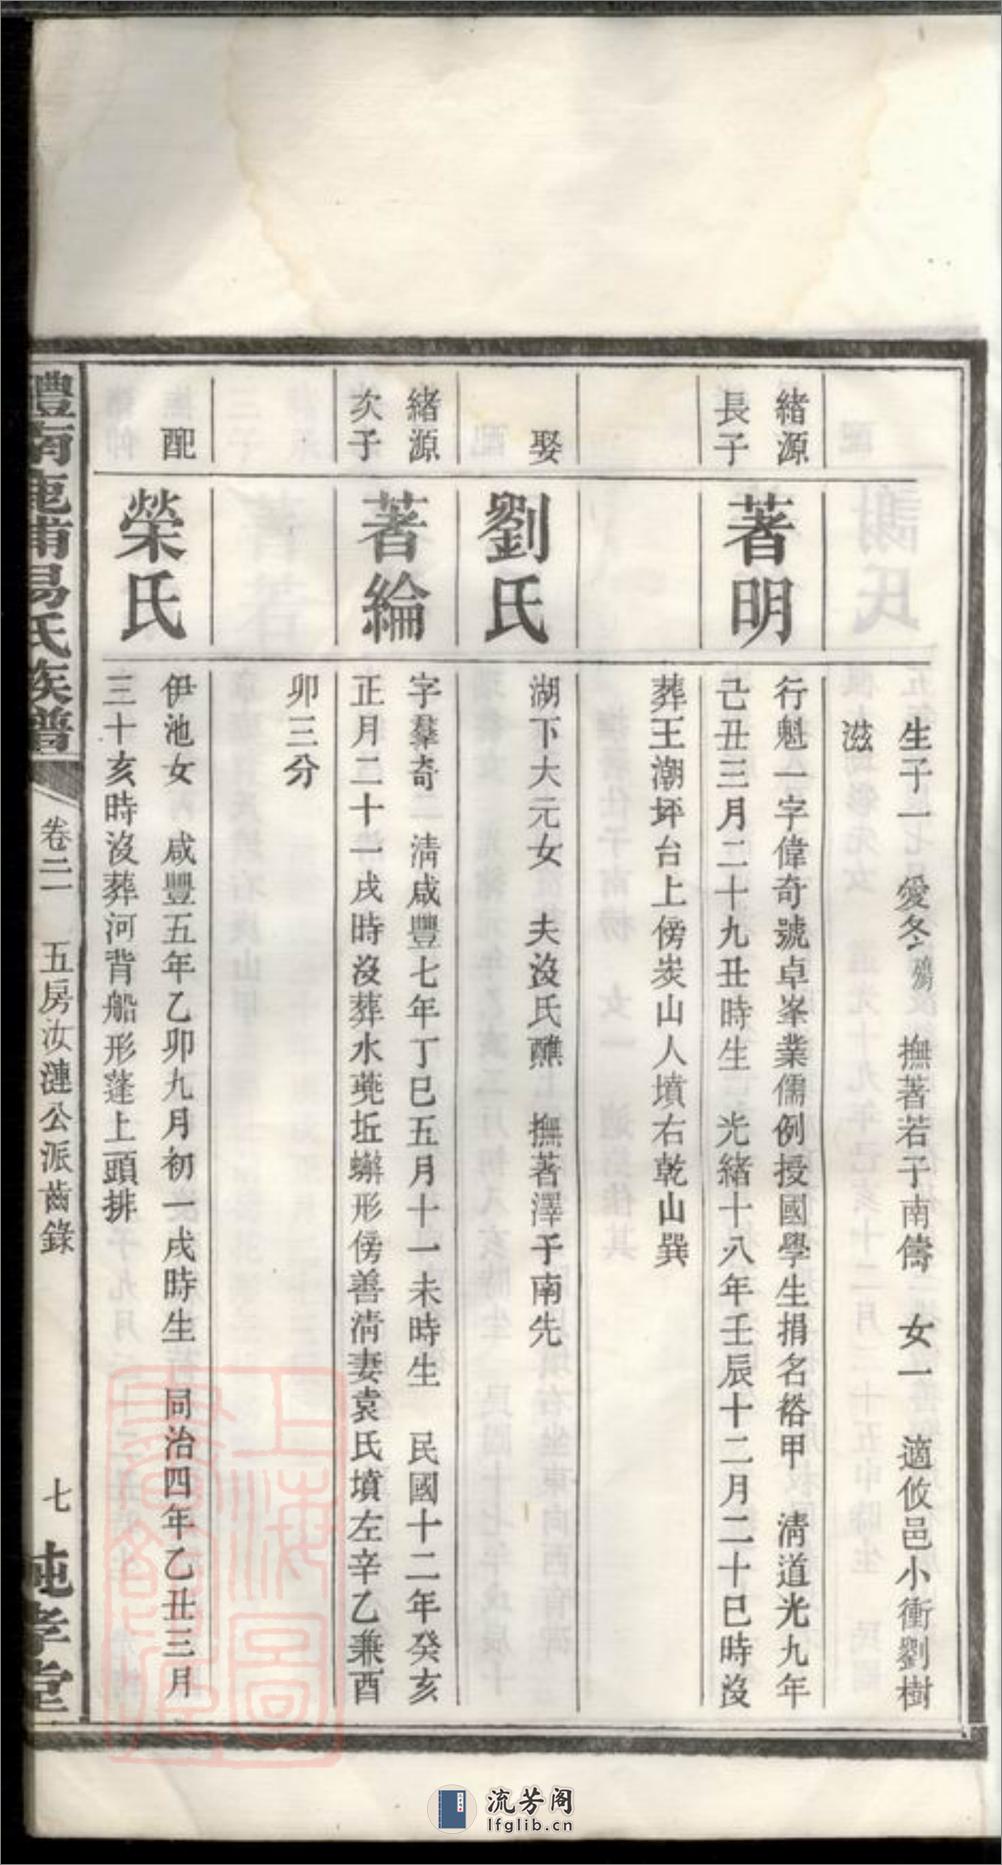 生子一 愛冬 殤 撫著若子南儔 女一 適攸邑小衝劉樹
滋
緒源
長子
著明
行魁一字偉奇號卓峯業儒例授國學生捐名裕甲 清道光九年
己丑三月二十九丑時生 光緒十八年壬辰十二月二十巳時沒
葬王潮坪台上傍炭山人墳右乾山巽
娶
劉氏
湖下大元女 夫沒氏醮 撫著澤子南先
緒源
次子
著綸
字羣奇 清咸豐七年丁巳五月十一未時生 民國十二年癸亥
正月二十一戌時沒葬水蕘坵蠏形傍善清妻袁氏墳左辛乙兼酉
卯三分
配
榮氏
伊池女 咸豐五年乙卯九月初一戌時生 同治四年乙丑三月
三十亥時沒葬河背船形蓬上頭排
醴南 甫易氏族譜
卷二 五房汝漣公派齒錄
七
純孝堂
上海圖書館藏
流芳阁
lfglib.cn